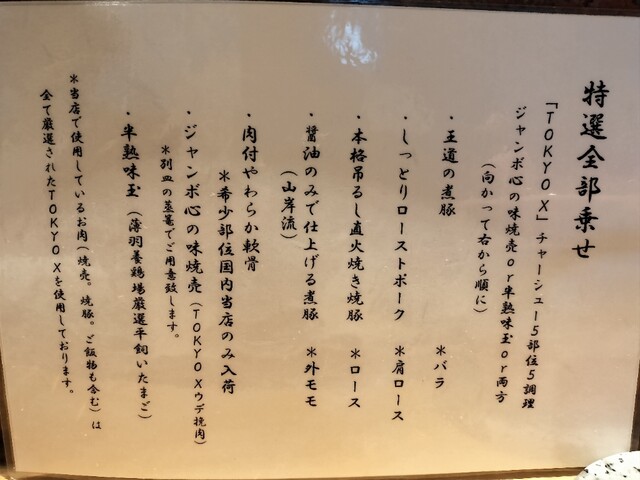 特選全部乗せ
「TOKYO X」チャーシュー5部位5調理
ジャンボ心の味焼売or半熟味玉or両方
(向かって右から順に)
・王道の煮豚 *バラ
・しっとりローストポーク *肩ロース
・本格吊るし直火焼き焼豚 *ロース
・醤油のみで仕上げる煮豚 *外モモ
(山岸流)
・肉付やわらか軟骨
*希少部位国内当店のみ入荷
・ジャンボ心の味焼売(TOKYO Xウデ挽肉)
*別皿の蒸篭でご用意致します。
・半熟味玉(薄羽養鶏場厳選平飼いたまご)
*当店で使用しているお肉(焼売。焼豚。ご飯物も含む)は
全て厳選されたTOKYO Xを使用しております。